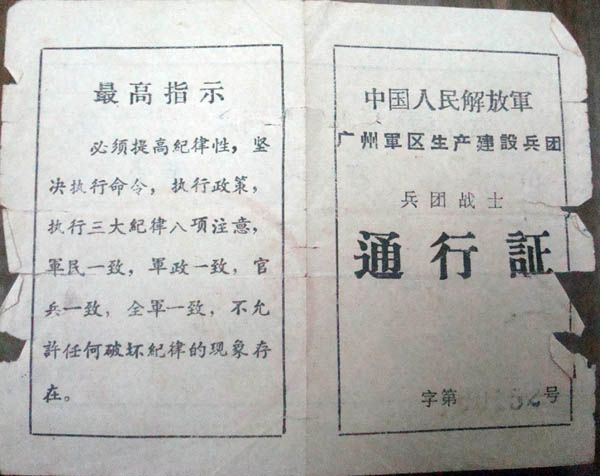 最高指示
必须提高紀律性，坚
决执行命令，执行政策，
执行三大紀律八项注意，
軍民一致，軍政一致，官
兵一致，全軍一致，不允
許任何破坏紀律的现象存
在。
中国人民解放軍
广州軍区生产建設兵团
兵团战士
通行証
字第 号